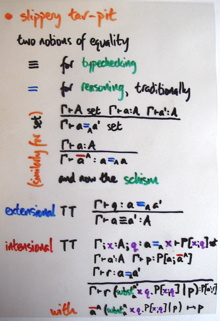 • slippery tar-pit
two notions of equality
≡ for typechecking
= for reasoning, traditionally
(similarly for set)
Γ⊢A set Γ⊢a:A Γ⊢a':A
Γ⊢a =_A a' set
Γ⊢a:A
Γ⊢ a̅^A : a =_A a
and now the schism
extensional TT Γ⊢q : a =_A a'
Γ⊢a≡a':A
intensional TT Γ; x:A; q: a =_A x ⊢ P[x;q] set
Γ⊢a':A Γ⊢p:P[a; a̅^A]
Γ⊢r: a =_A a'
Γ⊢r (subst x q. P[x;q] | p) : P[a';r]
with a̅^A (subst x q. P[x;q] | p) ↦ p